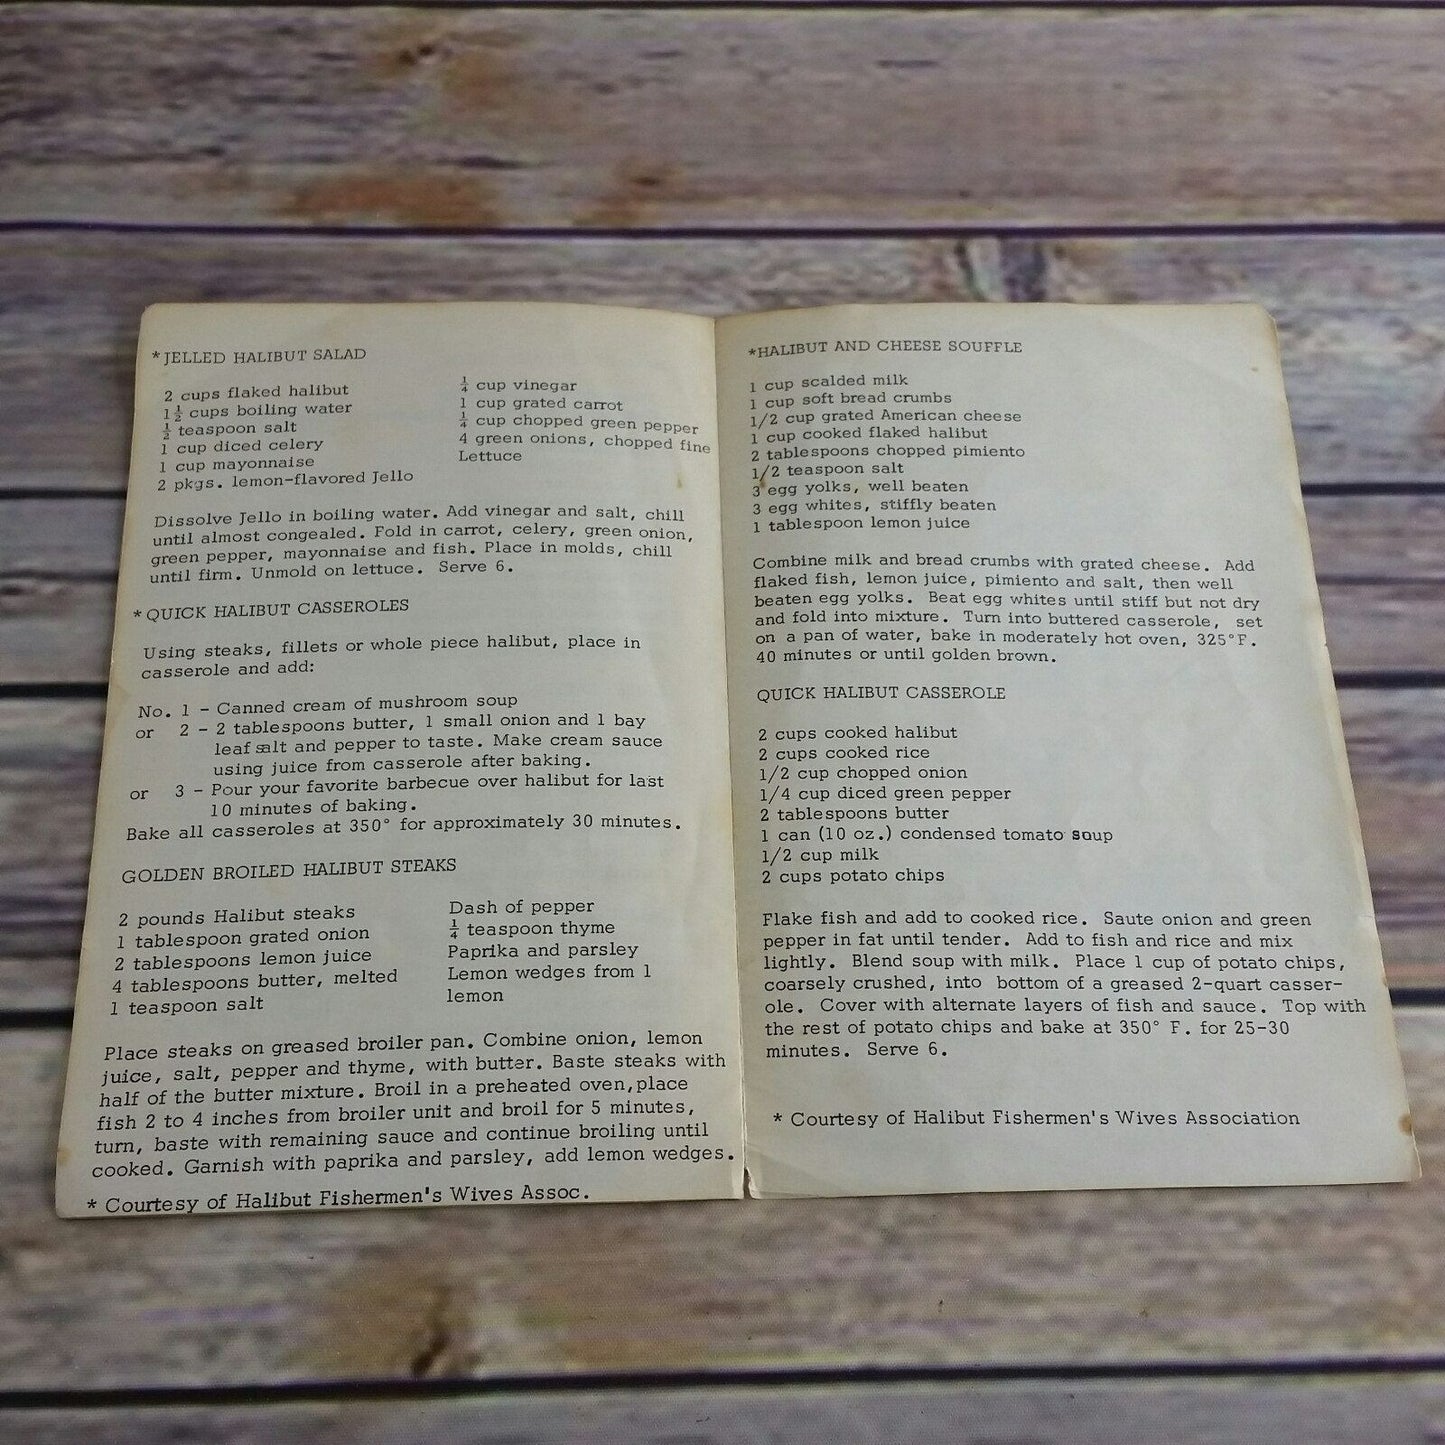 *JELLED HALIBUT SALAD
2 cups flaked halibut
1½ cups boiling water
½ teaspoon salt
1 cup diced celery
1 cup mayonnaise
2 pkgs. lemon-flavored Jello
¼ cup vinegar
1 cup grated carrot
¼ cup chopped green pepper
4 green onions, chopped fine
Lettuce
Dissolve Jello in boiling water. Add vinegar and salt, chill
until almost congealed. Fold in carrot, celery, green onion,
green pepper, mayonnaise and fish. Place in molds, chill
until firm. Unmold on lettuce. Serve 6.
*QUICK HALIBUT CASSEROLES
Using steaks, fillets or whole piece halibut, place in
casserole and add:
No. 1 - Canned cream of mushroom soup
or 2 - 2 tablespoons butter, 1 small onion and 1 bay
leaf salt and pepper to taste. Make cream sauce
using juice from casserole after baking.
or 3 - Pour your favorite barbecue over halibut for last
10 minutes of baking.
Bake all casseroles at 350° for approximately 30 minutes.
GOLDEN BROILED HALIBUT STEAKS
2 pounds Halibut steaks
1 tablespoon grated onion
2 tablespoons lemon juice
4 tablespoons butter, melted
1 teaspoon salt
Dash of pepper
¼ teaspoon thyme
Paprika and parsley
Lemon wedges from 1
lemon
Place steaks on greased broiler pan. Combine onion, lemon
juice, salt, pepper and thyme, with butter. Baste steaks with
half of the butter mixture. Broil in a preheated oven,place
fish 2 to 4 inches from broiler unit and broil for 5 minutes,
turn, baste with remaining sauce and continue broiling until
cooked. Garnish with paprika and parsley, add lemon wedges.
* Courtesy of Halibut Fishermen's Wives Assoc.
*HALIBUT AND CHEESE SOUFFLE
1 cup scalded milk
1 cup soft bread crumbs
1/2 cup grated American cheese
1 cup cooked flaked halibut
2 tablespoons chopped pimiento
1/2 teaspoon salt
3 egg yolks, well beaten
3 egg whites, stiffly beaten
1 tablespoon lemon juice
Combine milk and bread crumbs with grated cheese. Add
flaked fish, lemon juice, pimiento and salt, then well
beaten egg yolks. Beat egg whites until stiff but not dry
and fold into mixture. Turn into buttered casserole, set
on a pan of water, bake in moderately hot oven, 325°F.
40 minutes or until golden brown.
QUICK HALIBUT CASSEROLE
2 cups cooked halibut
2 cups cooked rice
1/2 cup chopped onion
1/4 cup diced green pepper
2 tablespoons butter
1 can (10 oz.) condensed tomato soup
1/2 cup milk
2 cups potato chips
Flake fish and add to cooked rice. Saute onion and green
pepper in fat until tender. Add to fish and rice and mix
lightly. Blend soup with milk. Place 1 cup of potato chips,
coarsely crushed, into bottom of a greased 2-quart casser-
ole. Cover with alternate layers of fish and sauce. Top with
the rest of potato chips and bake at 350° F. for 25-30
minutes. Serve 6.
* Courtesy of Halibut Fishermen's Wives Association